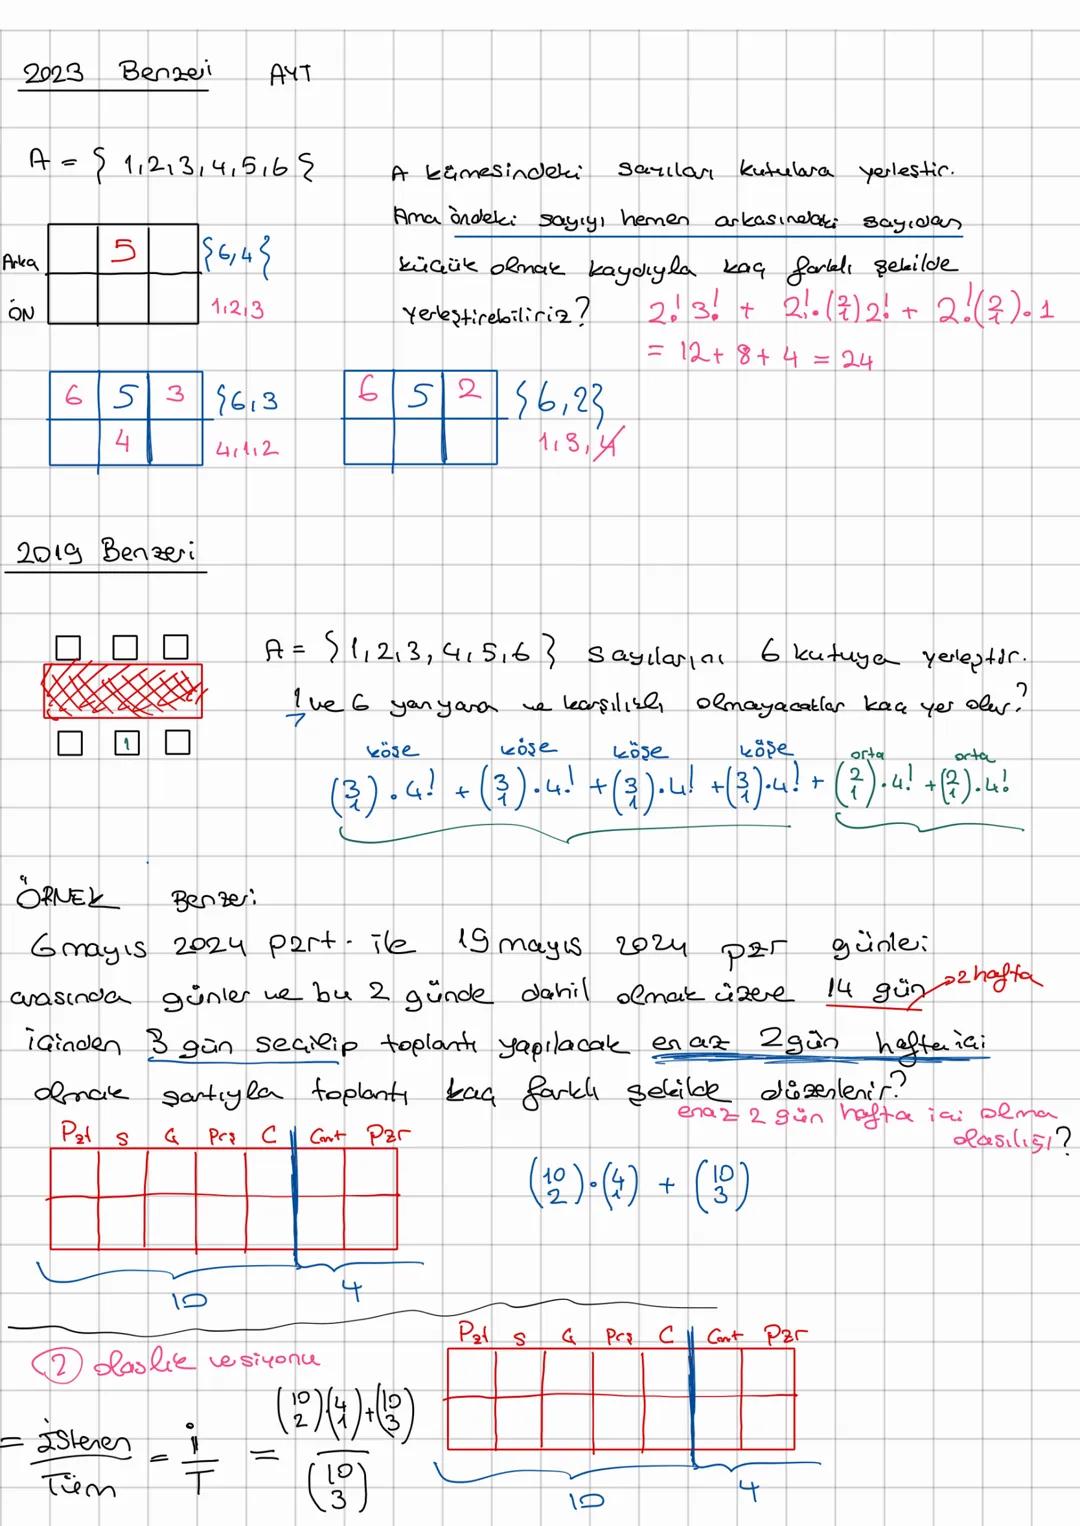 2023 Benzeri AYT
A = { 1,2,3,4,5,6 }
A kümesindeki sayıları kutulara yerleştir.
Ama öndeki sayıyı hemen arkasındaki sayıdan
küçük olmak kaydıyla kaç farklı şekilde
yerleştirebiliriz?
2! 3! + 2!.(2 1) 2! + 2!(2 1).1
= 12 + 8 + 4 = 24
Arka 5 {6,4}
ÖN 1,2,3
6 5 3 {6,3
4 4,1,2
6 5 2 {6,2}
1,3,4
2019 Benzeri
1
A = { 1,2,3,4,5,6 } sayılarını 6 kutuya yerleştir.
1 ve 6 yanyana ve karşılıklı olmayacaklar kaç yer olur?
köşe köşe köşe köşe orta orta
(3 1).4! + (3 1).4! + (3 1).4! + (3 1).4! + (2 1).4! + (2 1).4!
ÖRNEK Benzeri
6 mayıs 2024 pzrt. ile 19 mayıs 2024 pzr günleri
arasında günler ve bu 2 günde dahil olmak üzere 14 gün → 2 hafta
içinden 3 gün seçilip toplantı yapılacak en az 2 gün hafta içi
olmak şartıyla toplantı kaç farklı şekilde düzenlenir?
en az 2 gün hafta içi olma
olasılığı?
Pzt S Ç Prş C Cmt Pzr
10 4
(10 2).(4 1) + (10 3)
2 olaslık vesiyonu
= İstenen / Tüm = i / T = (10 2)(4 1)+(10 3) / (10 3)
Pzt S Ç Prş C Cmt Pzr
10 4